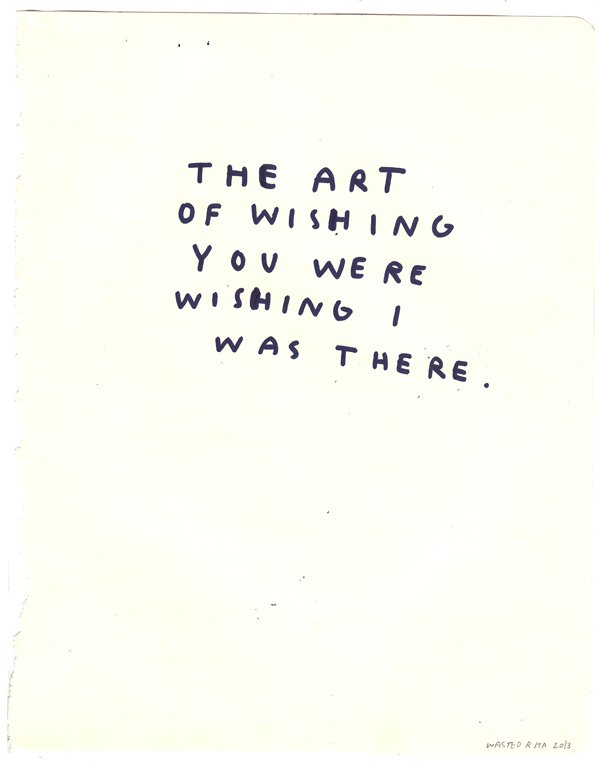 THE ART
OF WISHING
YOU WERE
WISHING I
WAS THERE.
WASTED RITA 2013